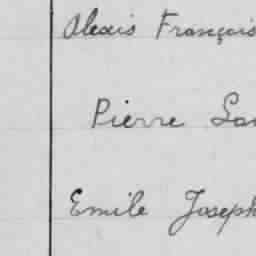 Alexis François
Pierre
Emile Joseph